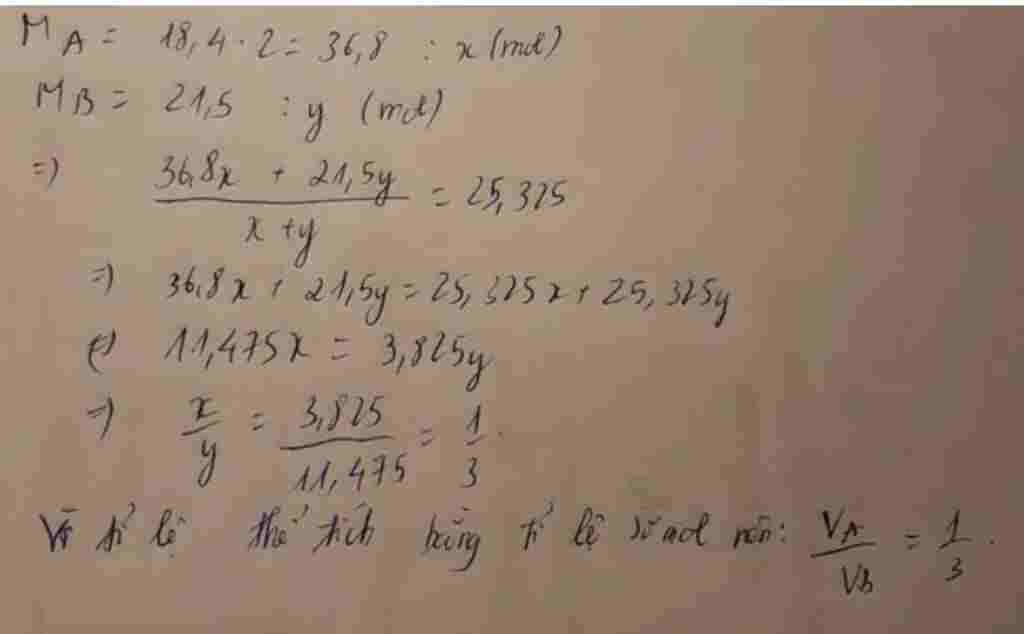 M_A = 18,4 . 2 = 36,8 : x (mol)
M_B = 21,5 : y (mol)
=> (36,8x + 21,5y) / (x + y) = 25,325
=> 36,8x + 21,5y = 25,325x + 25,325y
<=> 11,475x = 3,825y
=> x/y = 3,825/11,475 = 1/3.
Vì tỉ lệ thể tích bằng tỉ lệ số mol nên: V_A/V_B = 1/3.